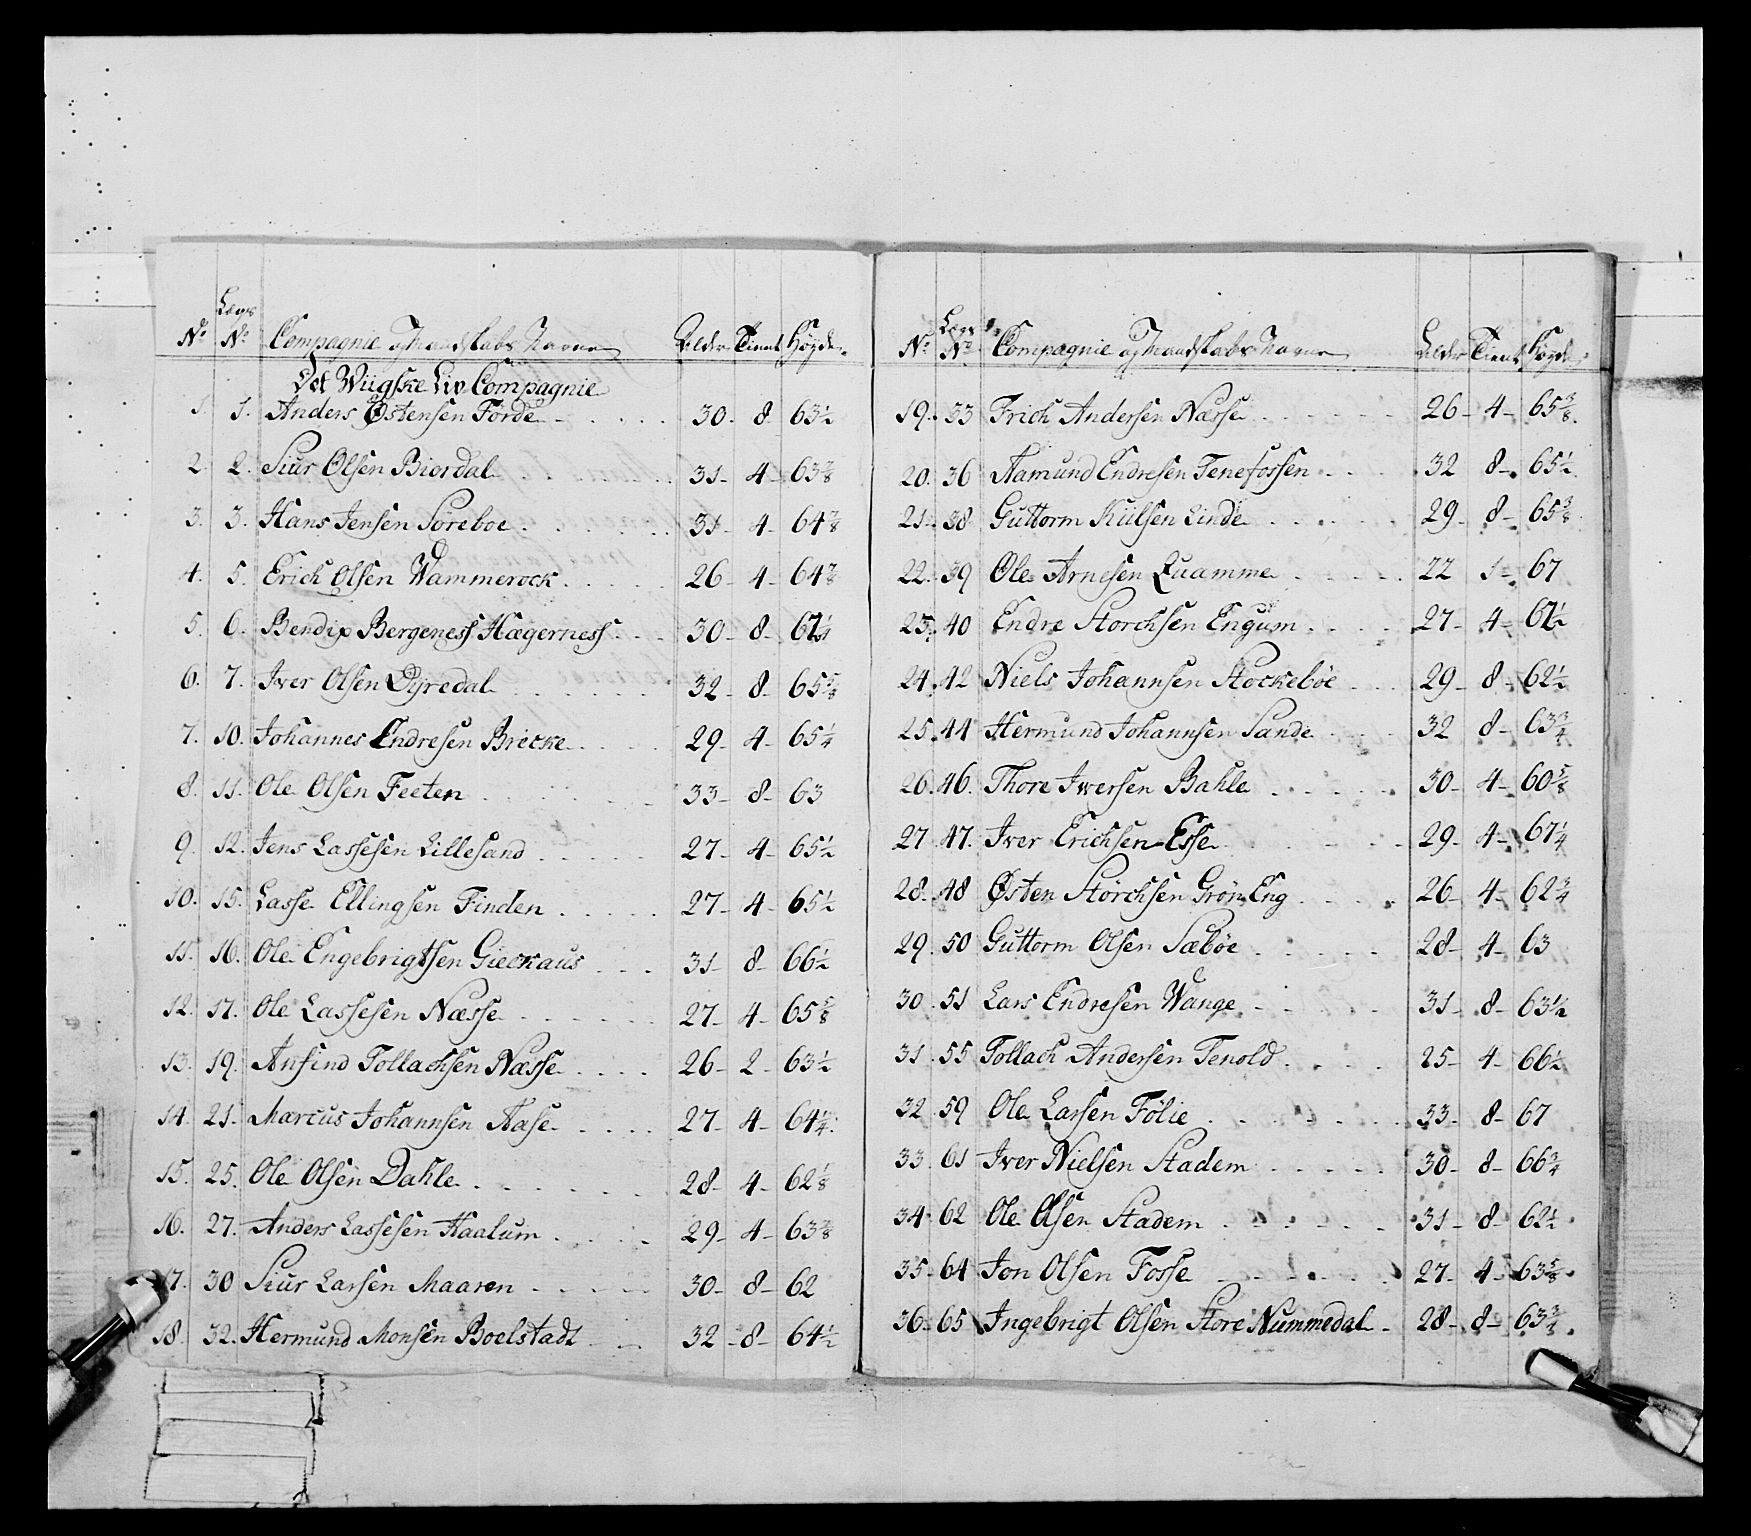 No Lægs No Compagnie og Mandskabs Navne Alder Tient Høyde
Det Wiigske Liv Compagnie
1. 1. Anders Østensen Förde 30. 8 63 1/2
2. 2. Siur Olsen Biordal 31 4 63 7/8
3. 3. Hans Jensen Söreboe 31 4 64 7/8
4. 5. Erich Olsen Wammerock 26 4 64 7/8
5. 6. Bendix Bergeness Hægerness 30 8
6. 7. Iver Olsen Dyredal 32 8 65 5/8
7. 10. Johannes Endresen Brecke 29 4 65 1/4
8. 11. Ole Olsen Feeten 33 8 63
9. 12. Jens Lassesen Lillesand 27 4 65 1/2
10. 15. Lasse Ellingsen Finden 27 4 65 1/2
11. 16. Ole Engebrigtsen Gieckaus 31 8 66 1/2
12. 17. Ole Lassesen Næsse 27 4 65 5/8
13. 19. Ansind Tollachsen Næsse 26 2 63 1/2
14. 21. Marcus Johannsen Aase 27 4 64 1/4
15. 25. Ole Olsen Dahle 28 4 62 1/8
16. 27. Anders Lassesen Haalum 29 4 63 7/8
17. 30 Siur Larsen Maaren 30 8 62
18. 32. Hermund Monsen Boelstadt 32 8 64 1/2
No Lægs No Compagnie og Mandskabs Navne Alder Tient Høyde
19. 33 Erich Andersen Næsse 26 4 65 3/8
20. 36 Aamund Endresen Tenefossen 32 8 65 1/2
21. 38 Guttorm Külsen Linde 29 8 65 3/8
22. 39 Ole Arnesen Quamme 22 1 67
23. 40 Endre Storchsen Engum 27 4
24. 42 Niels Johannsen Stockebøe 29 8 62 1/2
25. 44 Hermund Johannsen Sande 32 8 63 3/4
26. 46. Thore Iwersen Bahle 30 4 60 5/8
27 47. Iver Erichsen Esse 29 4 67 1/4
28. 48 Østen Störchsen Grön Eng 26 4 62 3/4
29. 50 Guttorm Olsen Sæbøe 28 4 63
30. 51 Lars Endresen Wange 31 8 63 1/2
31. 55 Tollach Andersen Tenold 25 4 66 1/2
32 59 Ole Larsen Følie 33 8 67
33. 61 Iver Nielsen Stadem 30 8 66 3/4
34. 62 Ole Olsen Stadem 31 8 62 1/2
35. 64 Jon Olsen Fosse 27 4 63 5/8
36. 65 Ingebrigt Olsen Store Nummedal 28 8 63 3/4